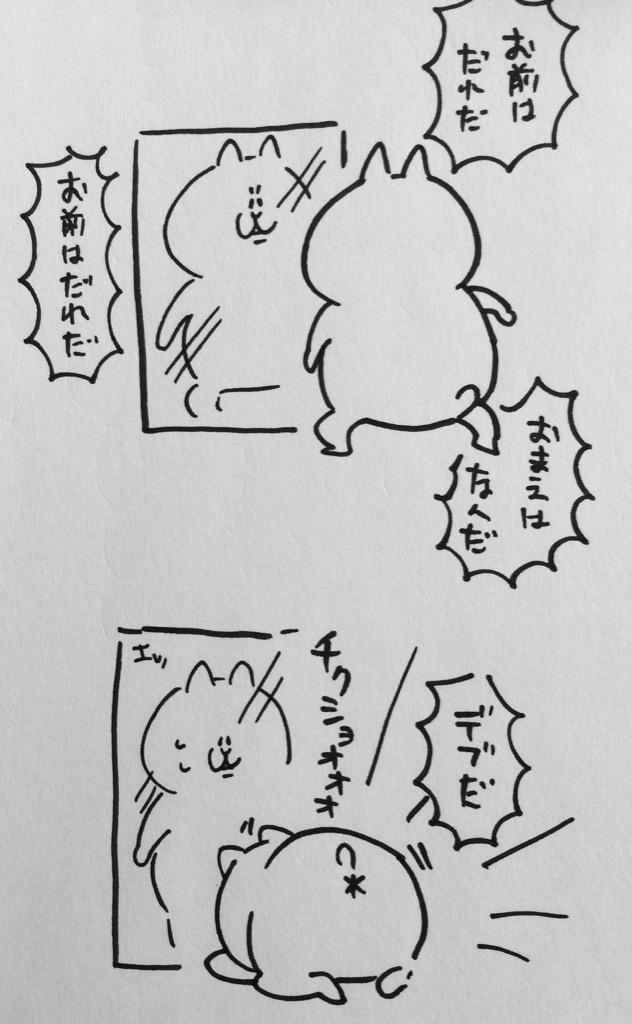 お前は
だれだ
お前はだれだ
おまえは
なんだ
エッ
チクショオオオ
デブだ